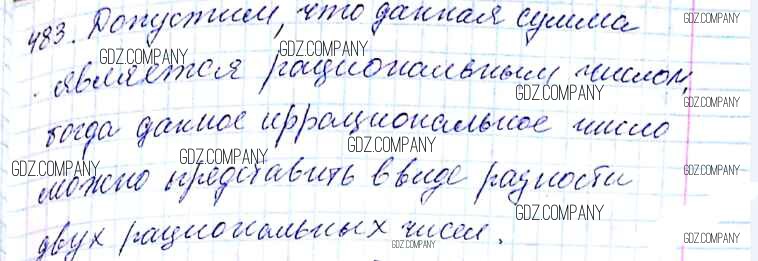 483. Допустим, что данная сумма
GDZ.COMPANY GDZ.COMPANY GDZ.COMPANY
является рациональным числом,
GDZ.COMPANY GDZ.COMPANY
тогда данное иррациональное число
GDZ.COMPANY GDZ.COMPANY GDZ.COMPANY GDZ.COMPANY
можно представить в виде разности
GDZ.COMPANY
двух рациональных чисел.
GDZ.COMPANY GDZ.COMPANY